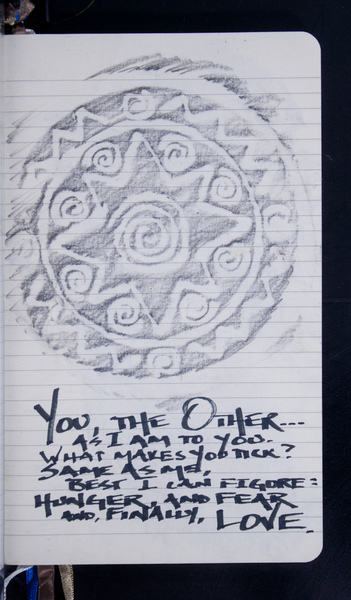 YOU, THE OTHER...
AS I AM TO YOU.
WHAT MAKES YOU TICK?
SAME AS ME,
BEST I CAN FIGORE:
HUNGER, AND FEAR
AND, FINALLY, LOVE.